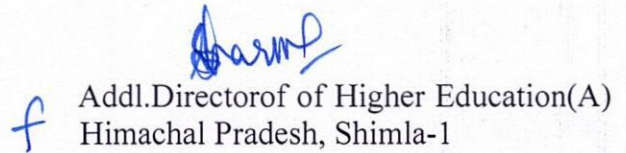 Sharma
f Addl.Directorof of Higher Education(A)
Himachal Pradesh, Shimla-1